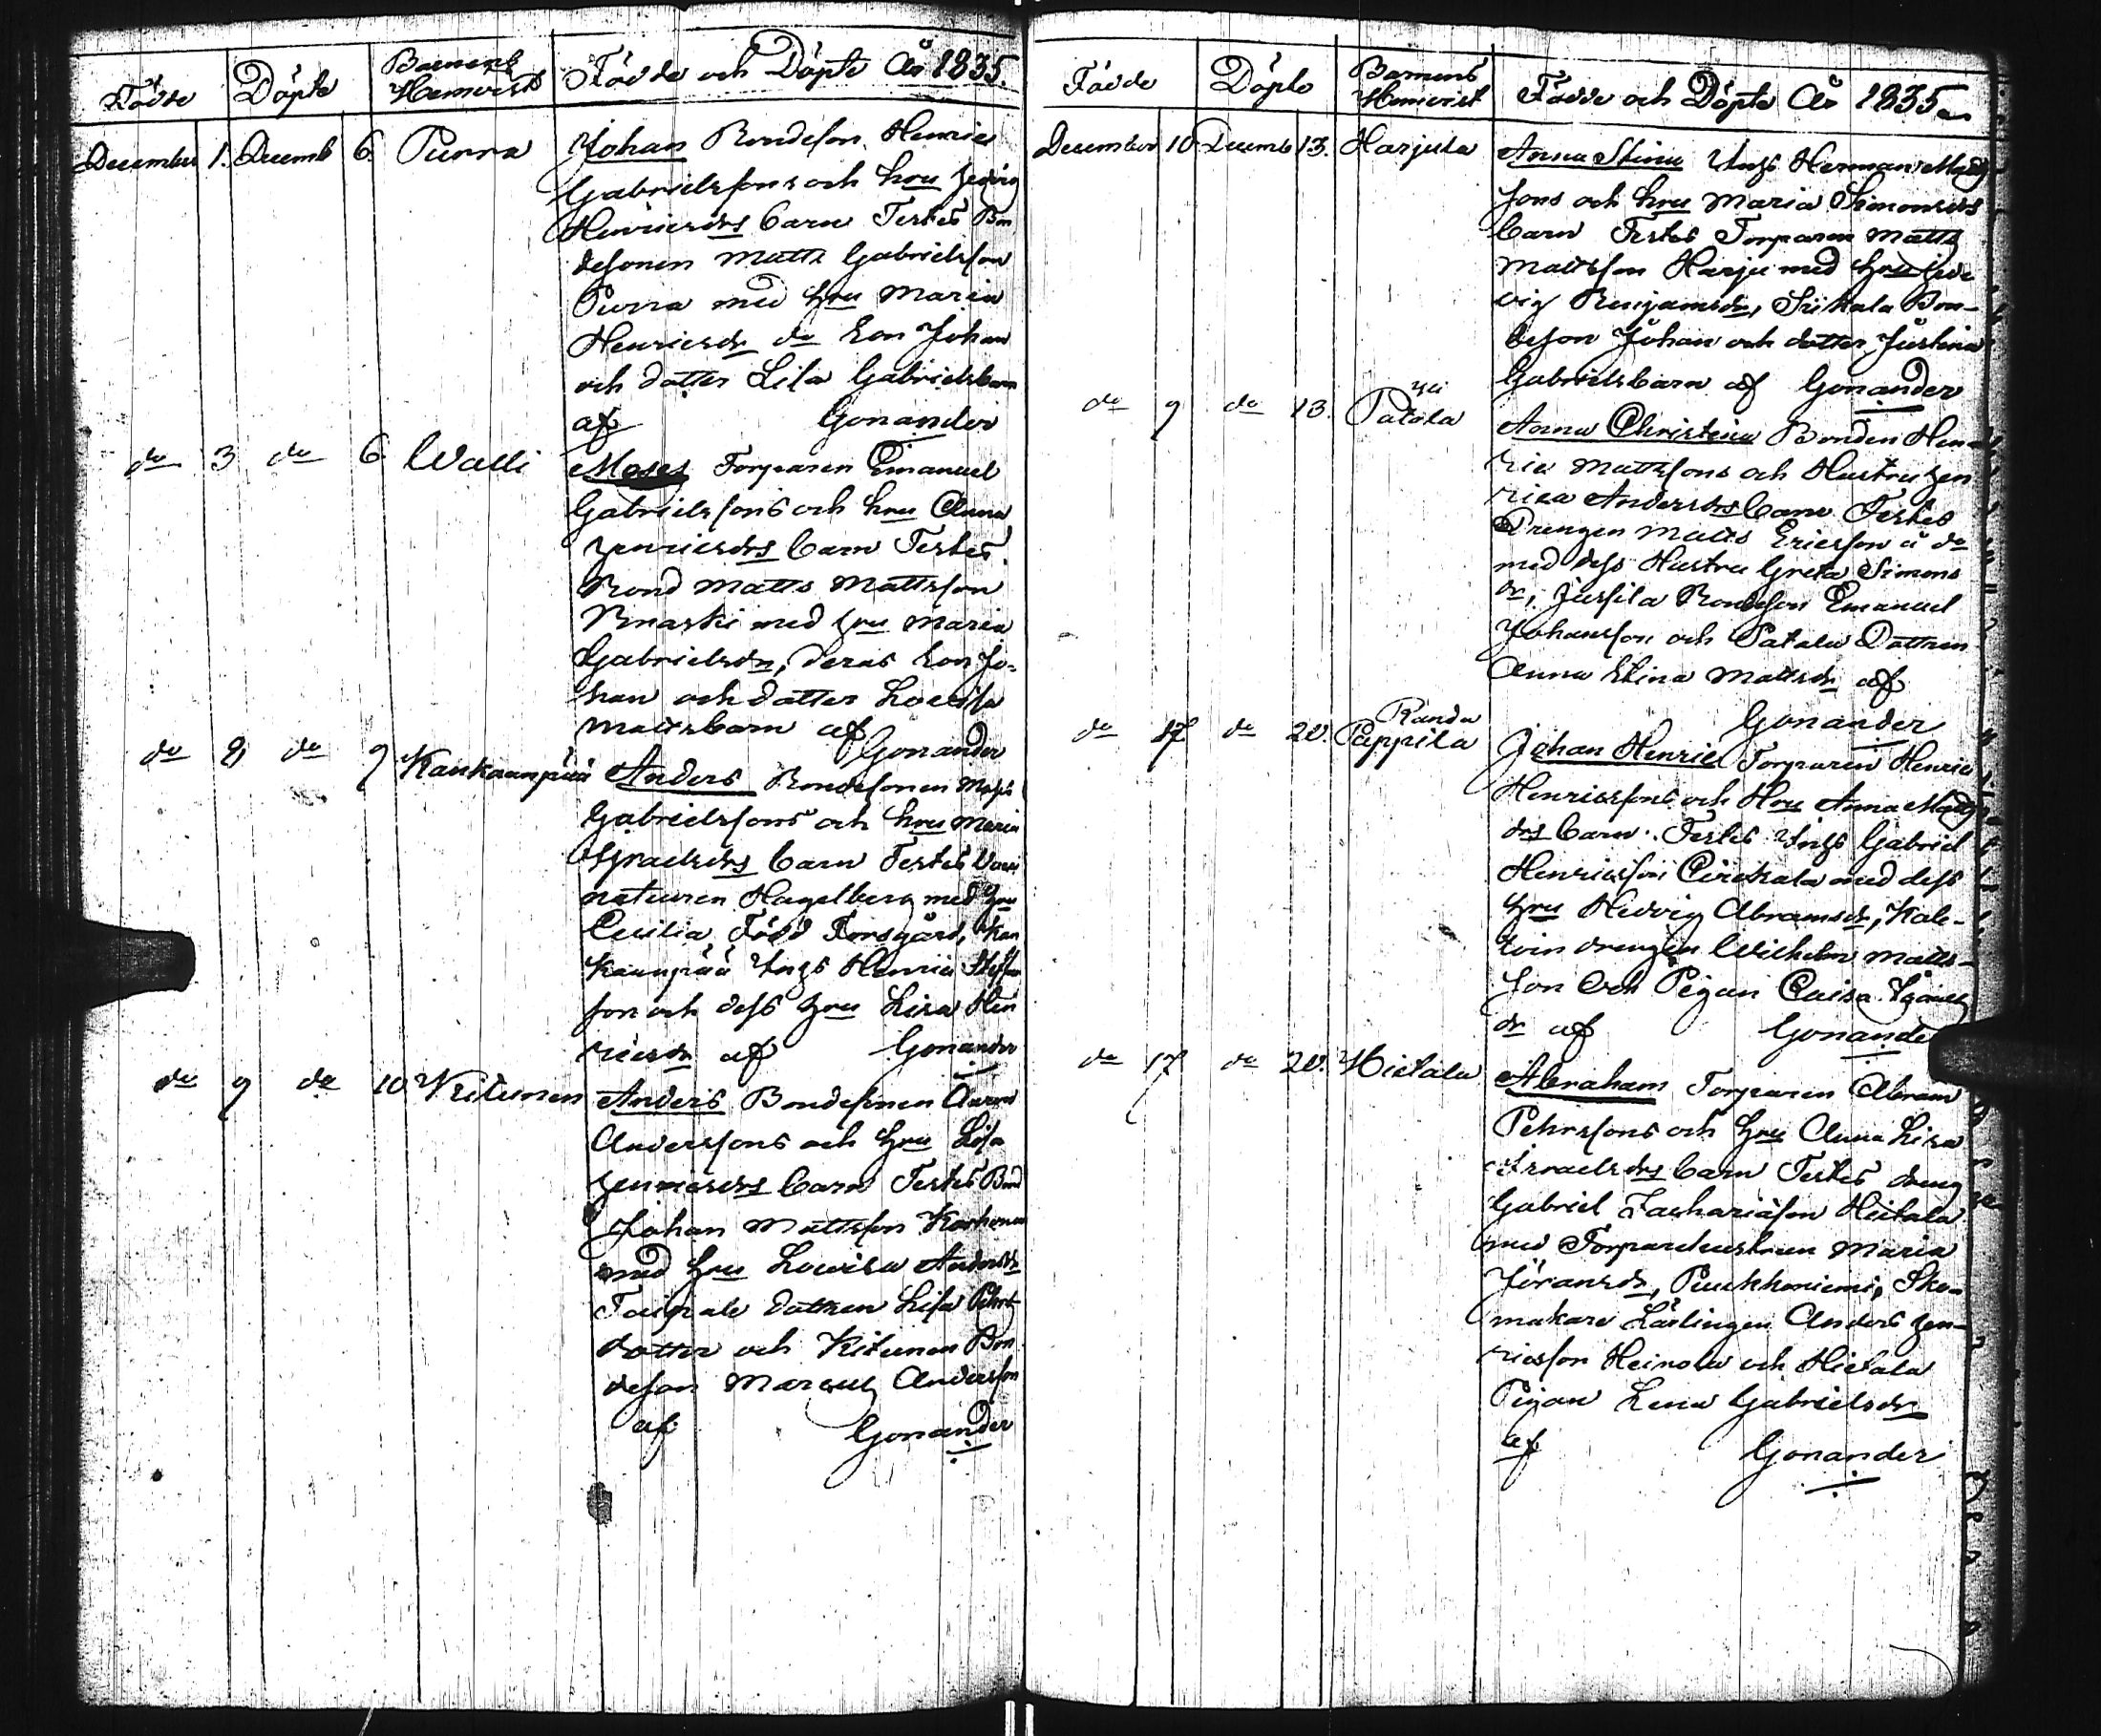 Födde Döpte Barnens Hemvist Födde och Döpte År 1835.
December 1. Decemb 6. Purra Johan Bondeson Henric
Gabrielssons och hru Hedvig
Henricsdrs barn Testes Bon
desonen Matts Gabrielsson
Purra med hru Maria
Henricsdr do Son Johan
och dotter Lisa Gabrielsbarn
af Gonander
do 3 do 6 Walli Moses Torparen Emanuel
Gabrielssons och hru Anna
Henricsdrs barn Testes
Bond Matts Mattsson
med hru Maria
Gabrielsdr, deras Son Jo-
han och dotter Lovisa
Mattsbarn af Gonander
do 8 do 9 Kankaanpää Anders Bondesonen
Gabrielssons och hru Maria
Israelsdrs barn Testes
Hagelberg med hru
Cecilia Född Forsgård, Kan
kaanpää Ings Henric
son och dess hru Lisa Hen
ricsdr af Gonander
do 9 do 10 Kitunen Anders Bondesonen
Anderssons och hru Lisa
Henricsdrs barn Testes Bond
Johan Mattsson Korhonen
med hru Lovisa Andersdr
dottren Lisa Pehrs
dotter och Kitunen Bon
deson Marcus Andersson
af Gonander
Födde Döpte Barnens Hemvist Födde och Döpte År 1835.
December 10 Decemb 13. Harjula Anna Stina Ings Herman Matts
sons och hru Maria Simonsdrs
barn Testes Torparen Matts
Mattsson Harju med hru Hed
vig Benjamsdr, Siikala Bon-
deson Johan och dotter Justina
Gabrielsbarn af Gonander
do 9 do 13. Yli Patola Anna Christina Bonden Hen
ric Mattssons och Hustru Hen
rica Andersdrs barn Testes
Drengen Matts Ericsson å do
med dess Hustru Greta Simons
dr, Jussila Bondeson Emanuel
Johansson och Patala Dottren
Anna Stina Mattsdr af
Gonander
do 17 do 20. Randa Pappila Johan Henric Torparen Henric
Henricssons och Hru Anna Matts
drs barn. Testes Ings Gabriel
Henricsson med dess
hru Hedvig Abramsdr, Kale-
toin drengen Wilhelm Matts-
son och Pigan Caisa
dr af Gonander
do 17 do 20. Hietala Abraham Torparen Abram
Pehrssons och hru Anna Lisa
Israelsdrs barn Testes dreng
Gabriel Zachariasson Hietala
med Torparehustrun Maria
Jöransdr, Puukkoniemi, Sko-
makare Lärlingen Anders Hen-
ricsson Heinola och Hietala
Pigan Lena Gabrielsdr
af Gonander